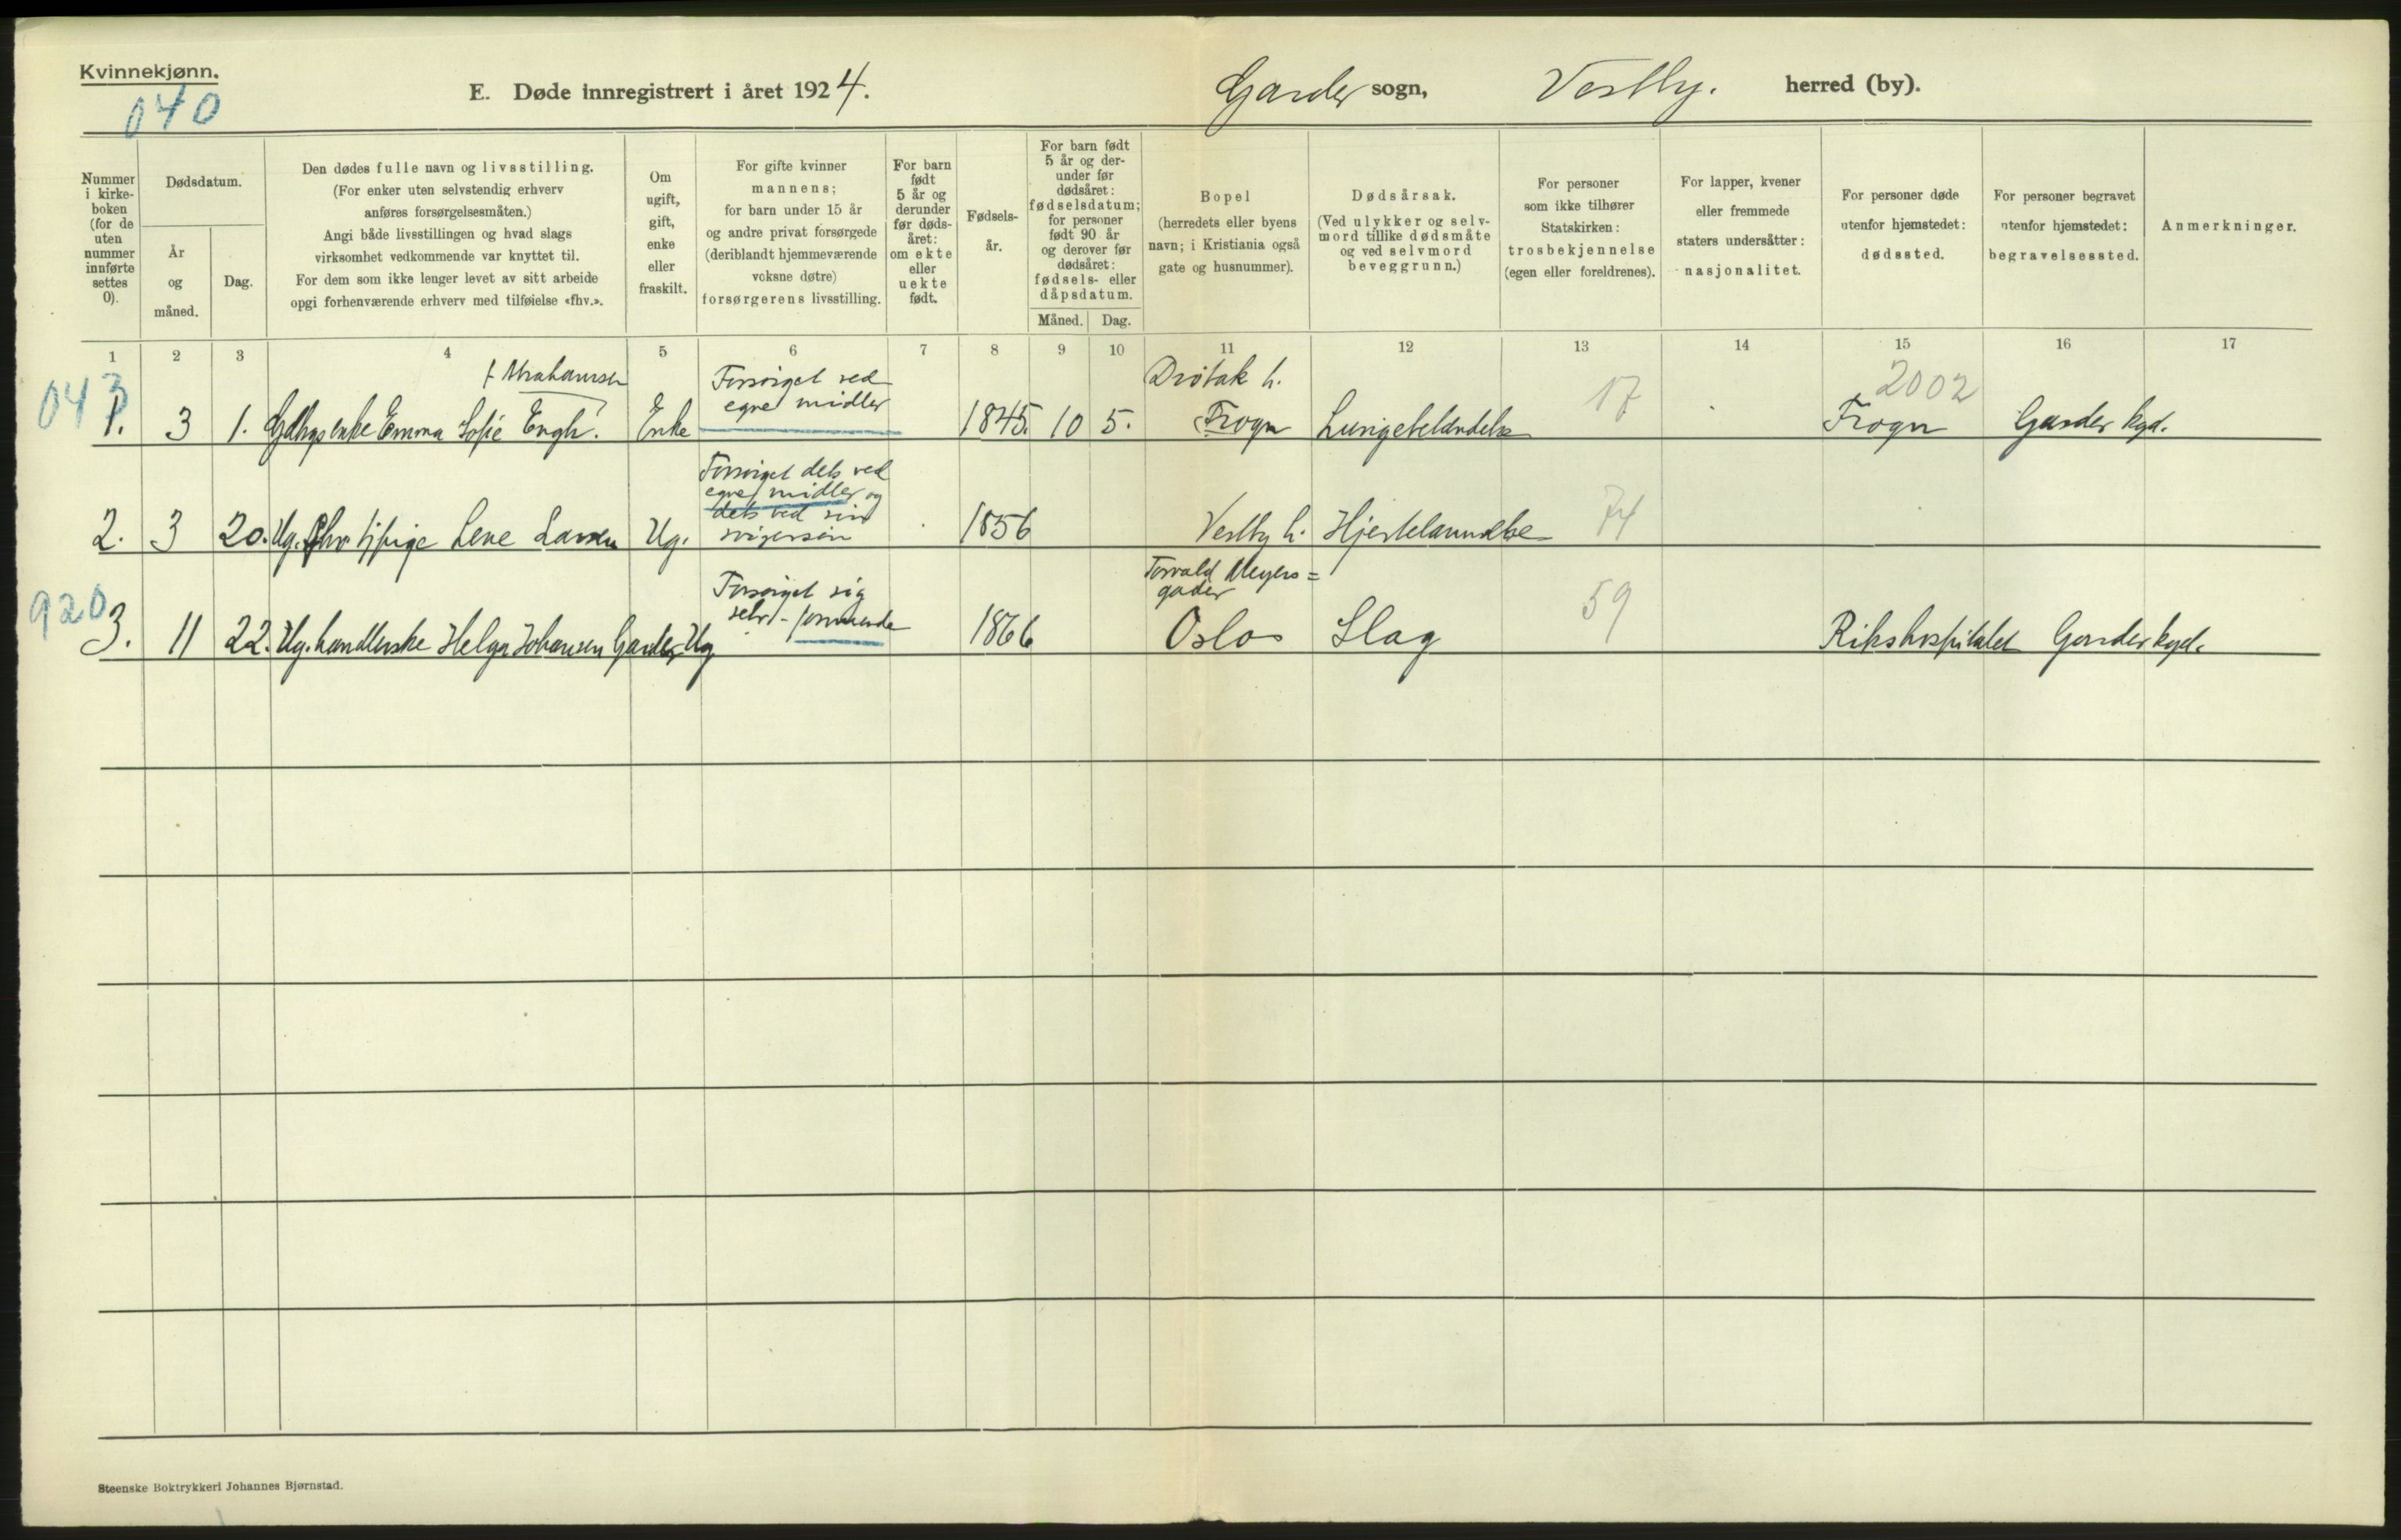 Kvinnekjønn.
040
E. Døde innregistrert i året 1924.
Garder sogn,
Vestby. herred (by).
Nummer
i kirke-
boken
(for de
uten
nummer
innførte
settes
0).
Dødsdatum.
År
og
måned.
Dag.
Den dødes fulle navn og livsstilling.
(For enker uten selvstendig erhverv
anføres forsørgelsesmåten.)
Angi både livsstillingen og hvad slags
virksomhet vedkommende var knyttet til.
For dem som ikke lenger levet av sitt arbeide
opgi forhenværende erhverv med tilføielse «fhv.».
Om
ugift,
gift,
enke
eller
fraskilt.
For gifte kvinner
mannens;
for barn under 15 år
og andre privat forsørgede
(deriblandt hjemmeværende
voksne døtre)
forsørgerens livsstilling.
For barn
født
5 år og
derunder
før døds-
året:
om ekte
eller
uekte
født.
Fødsels-
år.
For barn født
5 år og der-
under før
dødsåret:
fødselsdatum;
for personer
født 90 år
og derover før
dødsåret:
fødsels- eller
dåpsdatum.
Måned. Dag.
Bopel
(herredets eller byens
navn; i Kristiania også
gate og husnummer).
Dødsårsak.
(Ved ulykker og selv-
mord tillike dødsmåte
og ved selvmord
beveggrunn.)
For personer
som ikke tilhører
Statskirken:
trosbekjennelse
(egen eller foreldrenes).
For lapper, kvener
eller fremmede
staters undersåtter:
nasjonalitet.
For personer døde
utenfor hjemstedet:
dødssted.
For personer begravet
utenfor hjemstedet:
begravelsessted.
Anmerkninger.
1 2 3 4 5 6 7 8 9 10 11 12 13 14 15 16 17
f Abrahamsen
Forsørget ved
egne midler
Drøbak h.
2002
043
1. 3 1. enke Emma Sofie Engh. Enke 1845. 10 5. Frogn Lungebetændelse 17 Frogn Garder kgd.
Forsørget dels ved
egne midler og
dels ved sin
svigersøn
2. 3 20. Ug. fhv. tjpige Lene Larsen Ug. 1856 Vestby h. Hjertelammelse 74
Forsørget sig
selv - formuende
Torvald Meyers=
gader
920
3. 11 22. Ug. handlerske Helga Johansen Garder Ug 1866 Oslo Slag 59 Rikshospitalet Garder kgd.
Steenske Boktrykkeri Johannes Bjørnstad.